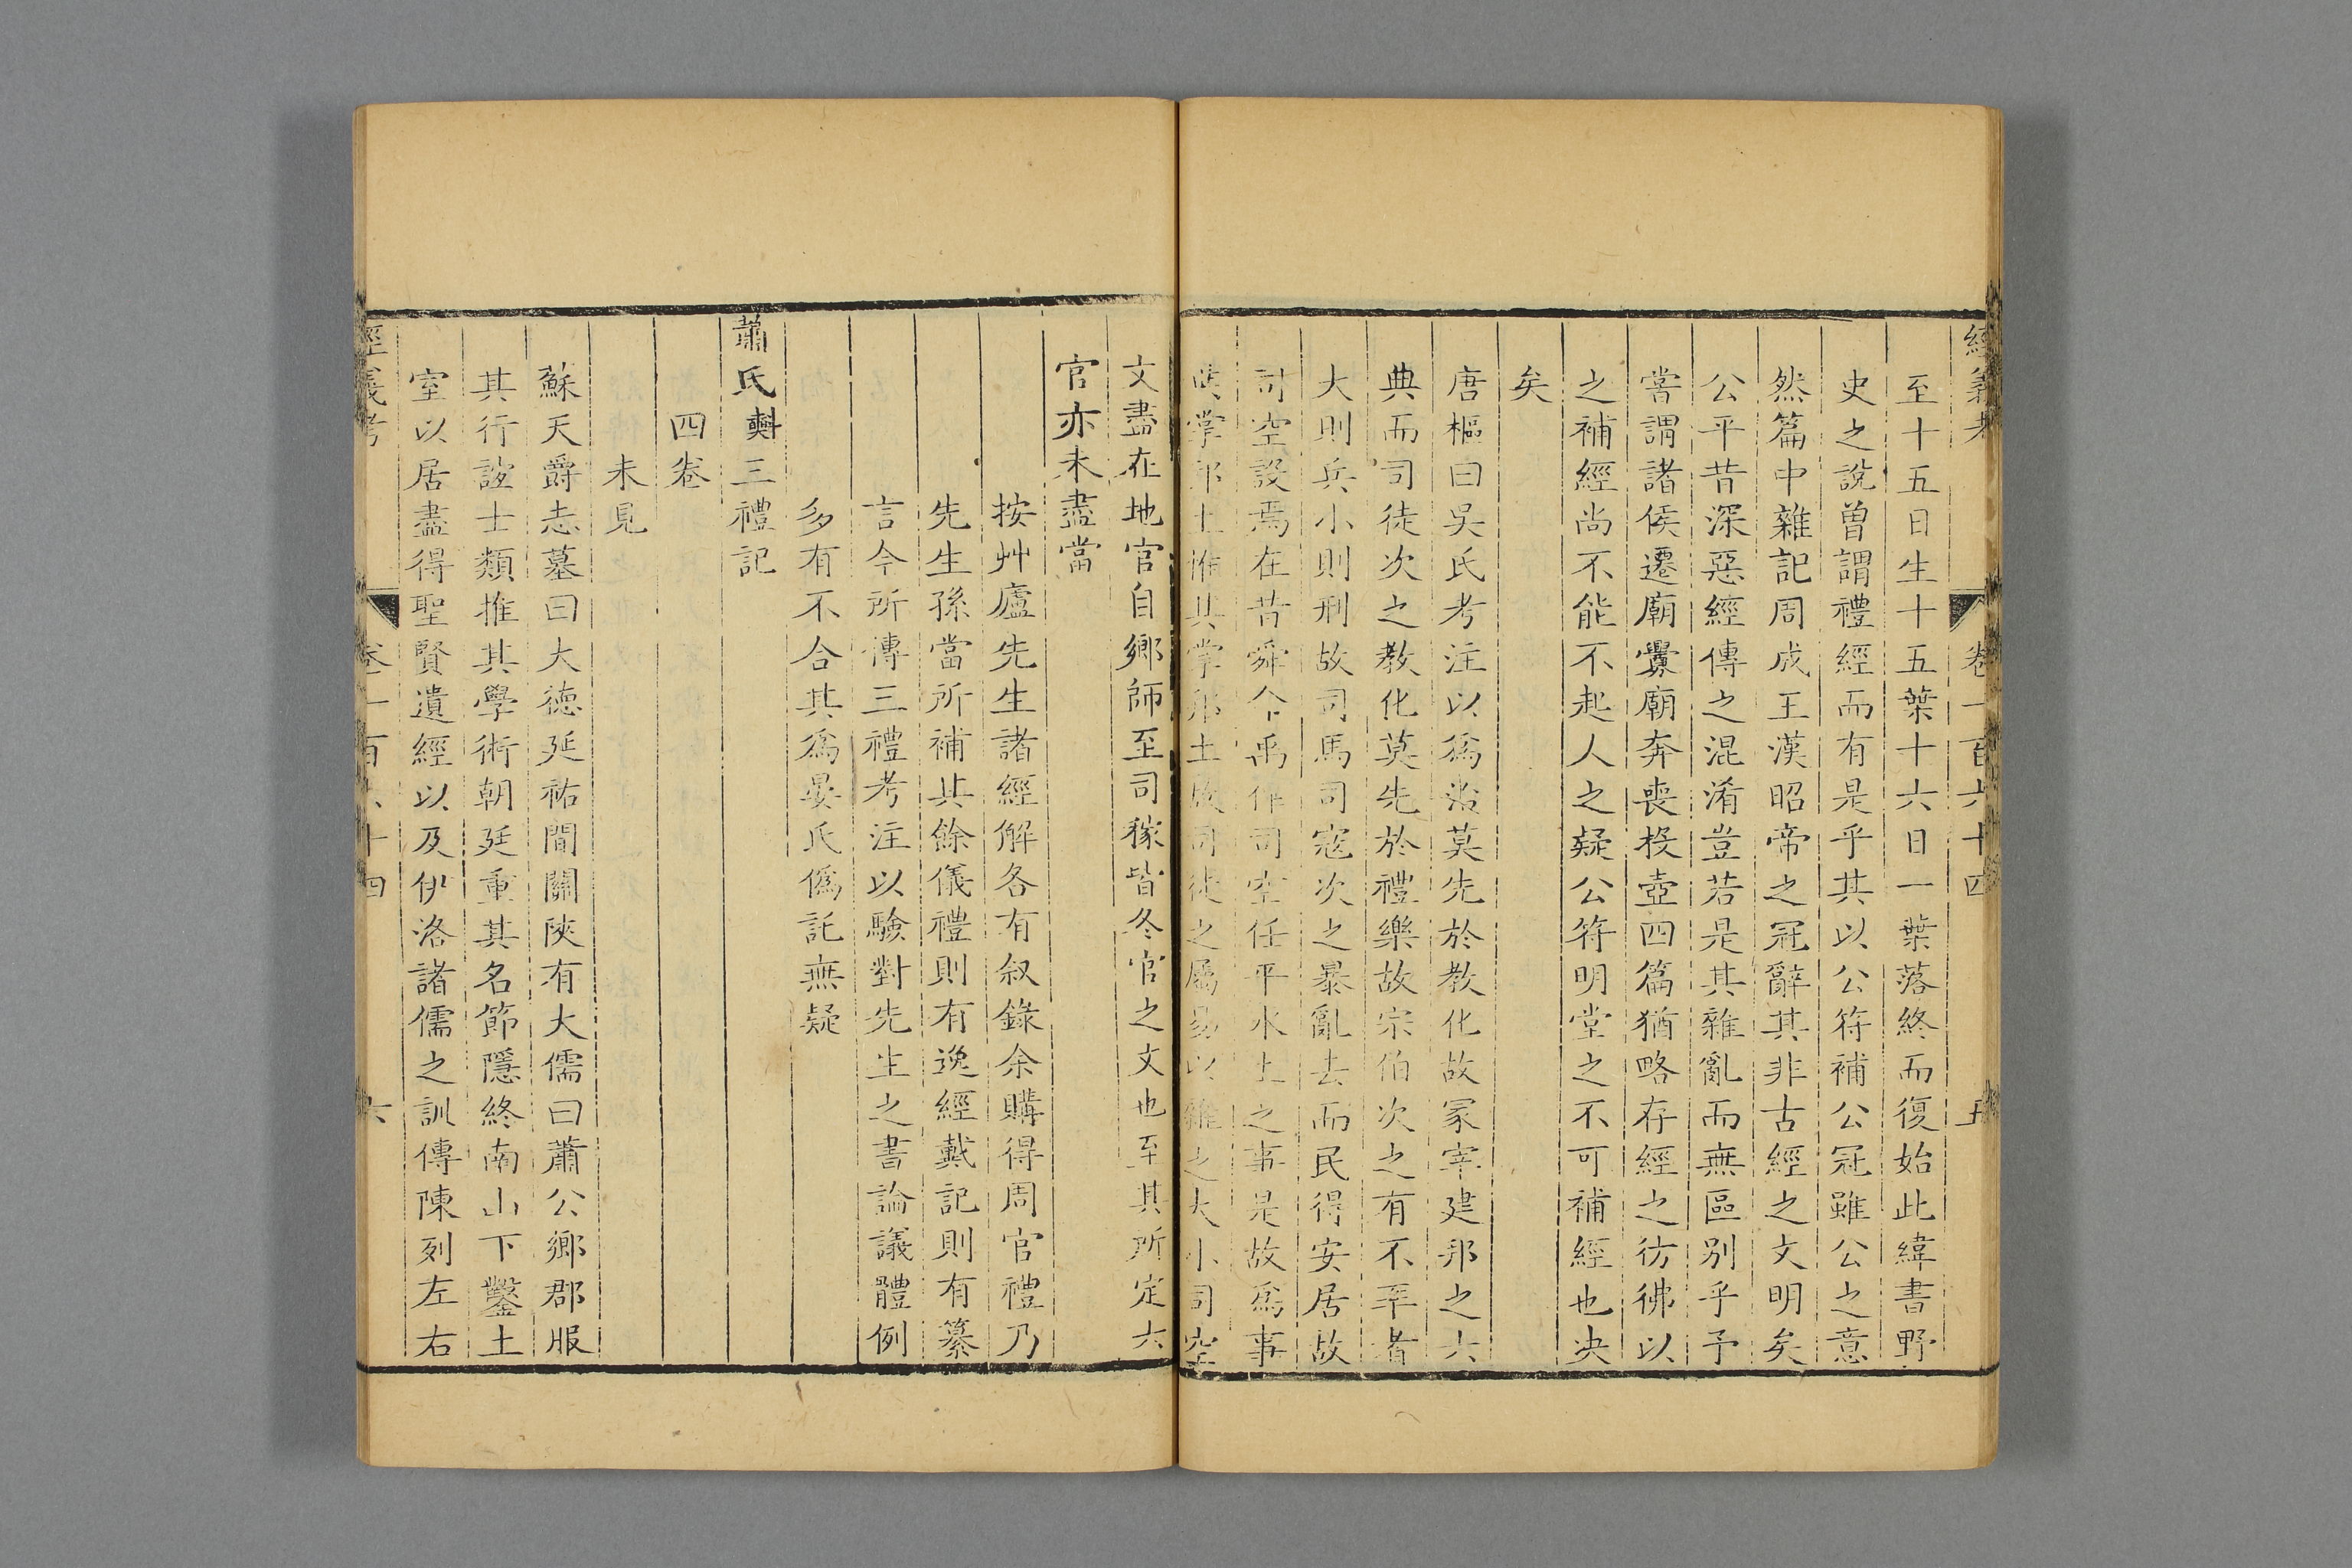 經義考 卷一百六十四 五
至十五日生十五葉十六日一葉落終而復始此緯書野
史之說曾謂禮經而有是乎其以公符補公冠雖公之意
然篇中雜記周成王漢昭帝之冠辭其非古經之文明矣
公平昔深惡經傳之混淆豈若是其雜亂而無區别乎予
嘗謂諸侯遷廟釁廟奔喪投壺四篇猶略存經之彷彿以
之補經尚不能不起人之疑公符明堂之不可補經也決
矣
唐樞曰吳氏考注以爲治莫先於教化故冢宰建邦之六
典而司徒次之教化莫先於禮樂故宗伯次之有不率者
大則兵小則刑故司馬司寇次之暴亂去而民得安居故
司空設焉在昔舜命禹作司空任平水土之事是故爲事
典掌邦土惟其掌邦土故司徒之屬易以雜之大小司空
文盡在地官自鄉師至司稼皆冬官之文也至其所定六
官亦未盡當
按艸廬先生諸經解各有叙錄余購得周官禮乃
先生孫當所補其餘儀禮則有逸經戴記則有纂
言今所傳三禮考注以驗對先生之書論議體例
多有不合其爲晏氏僞託無疑
蕭氏𣂏三禮記
四卷
未見
蘇天爵志墓曰大德延祐間關陝有大儒曰蕭公鄉郡服
其行誼士類推其學術朝廷重其名節隱終南山下鑿土
室以居盡得聖賢遺經以及伊洛諸儒之訓傳陳列左右
經義考 卷一百六十四 六